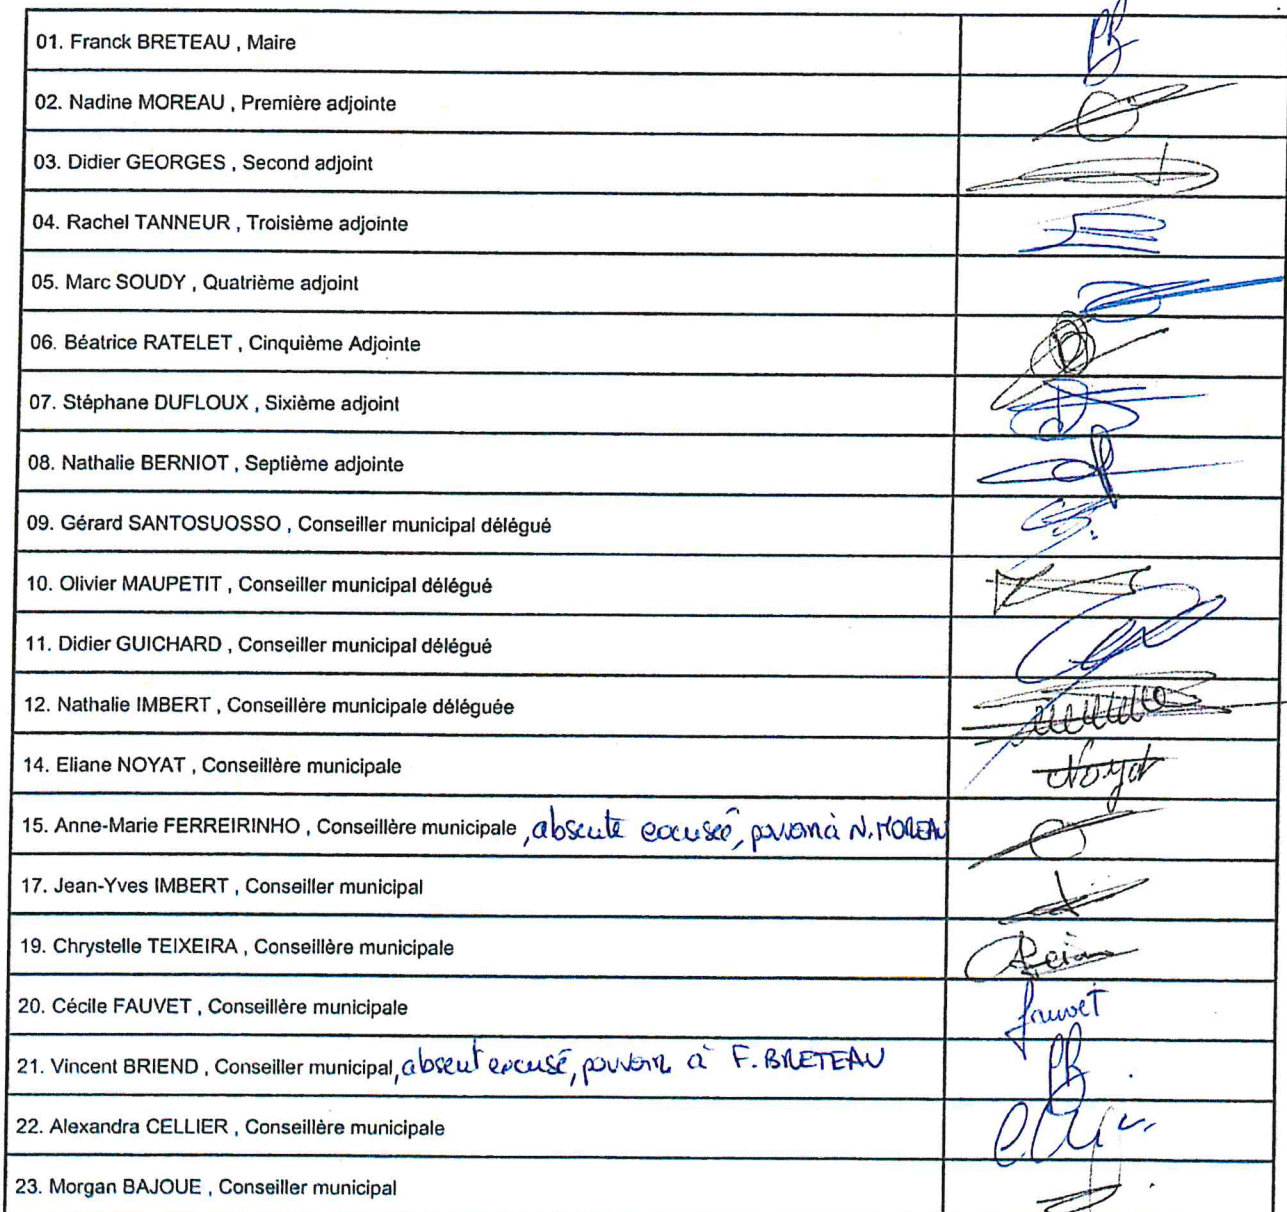 01. Franck BRETEAU , Maire
02. Nadine MOREAU , Première adjointe
03. Didier GEORGES , Second adjoint
04. Rachel TANNEUR , Troisième adjointe
05. Marc SOUDY , Quatrième adjoint
06. Béatrice RATELET , Cinquième Adjointe
07. Stéphane DUFLOUX , Sixième adjoint
08. Nathalie BERNIOT , Septième adjointe
09. Gérard SANTOSUOSSO , Conseiller municipal délégué
10. Olivier MAUPETIT , Conseiller municipal délégué
11. Didier GUICHARD , Conseiller municipal délégué
12. Nathalie IMBERT , Conseillère municipale déléguée
14. Eliane NOYAT , Conseillère municipale Noyat
15. Anne-Marie FERREIRINHO , Conseillère municipale , absente excusée, pouvoir à N. MOREAU
17. Jean-Yves IMBERT , Conseiller municipal
19. Chrystelle TEIXEIRA , Conseillère municipale
20. Cécile FAUVET , Conseillère municipale fauvet
21. Vincent BRIEND , Conseiller municipal, absent excusé, pouvoir à F. BRETEAU
22. Alexandra CELLIER , Conseillère municipale
23. Morgan BAJOUE , Conseiller municipal